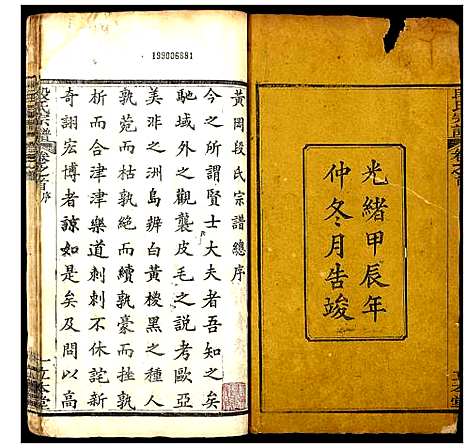 光緒甲辰年
仲冬月告竣
199006681
黃岡段氏宗譜總序
今之所謂賢士大夫者吾知之矣
馳域外之觀襲皮毛之說考歐亞
美非之洲島辨白黃椶黑之種人
孰菀而枯孰絶而續孰豪而挫孰
析而合津津樂道刺刺不休詫新
奇詡宏博者諒如是矣及問以高
段氏宗譜
卷之首
序
一
立本堂